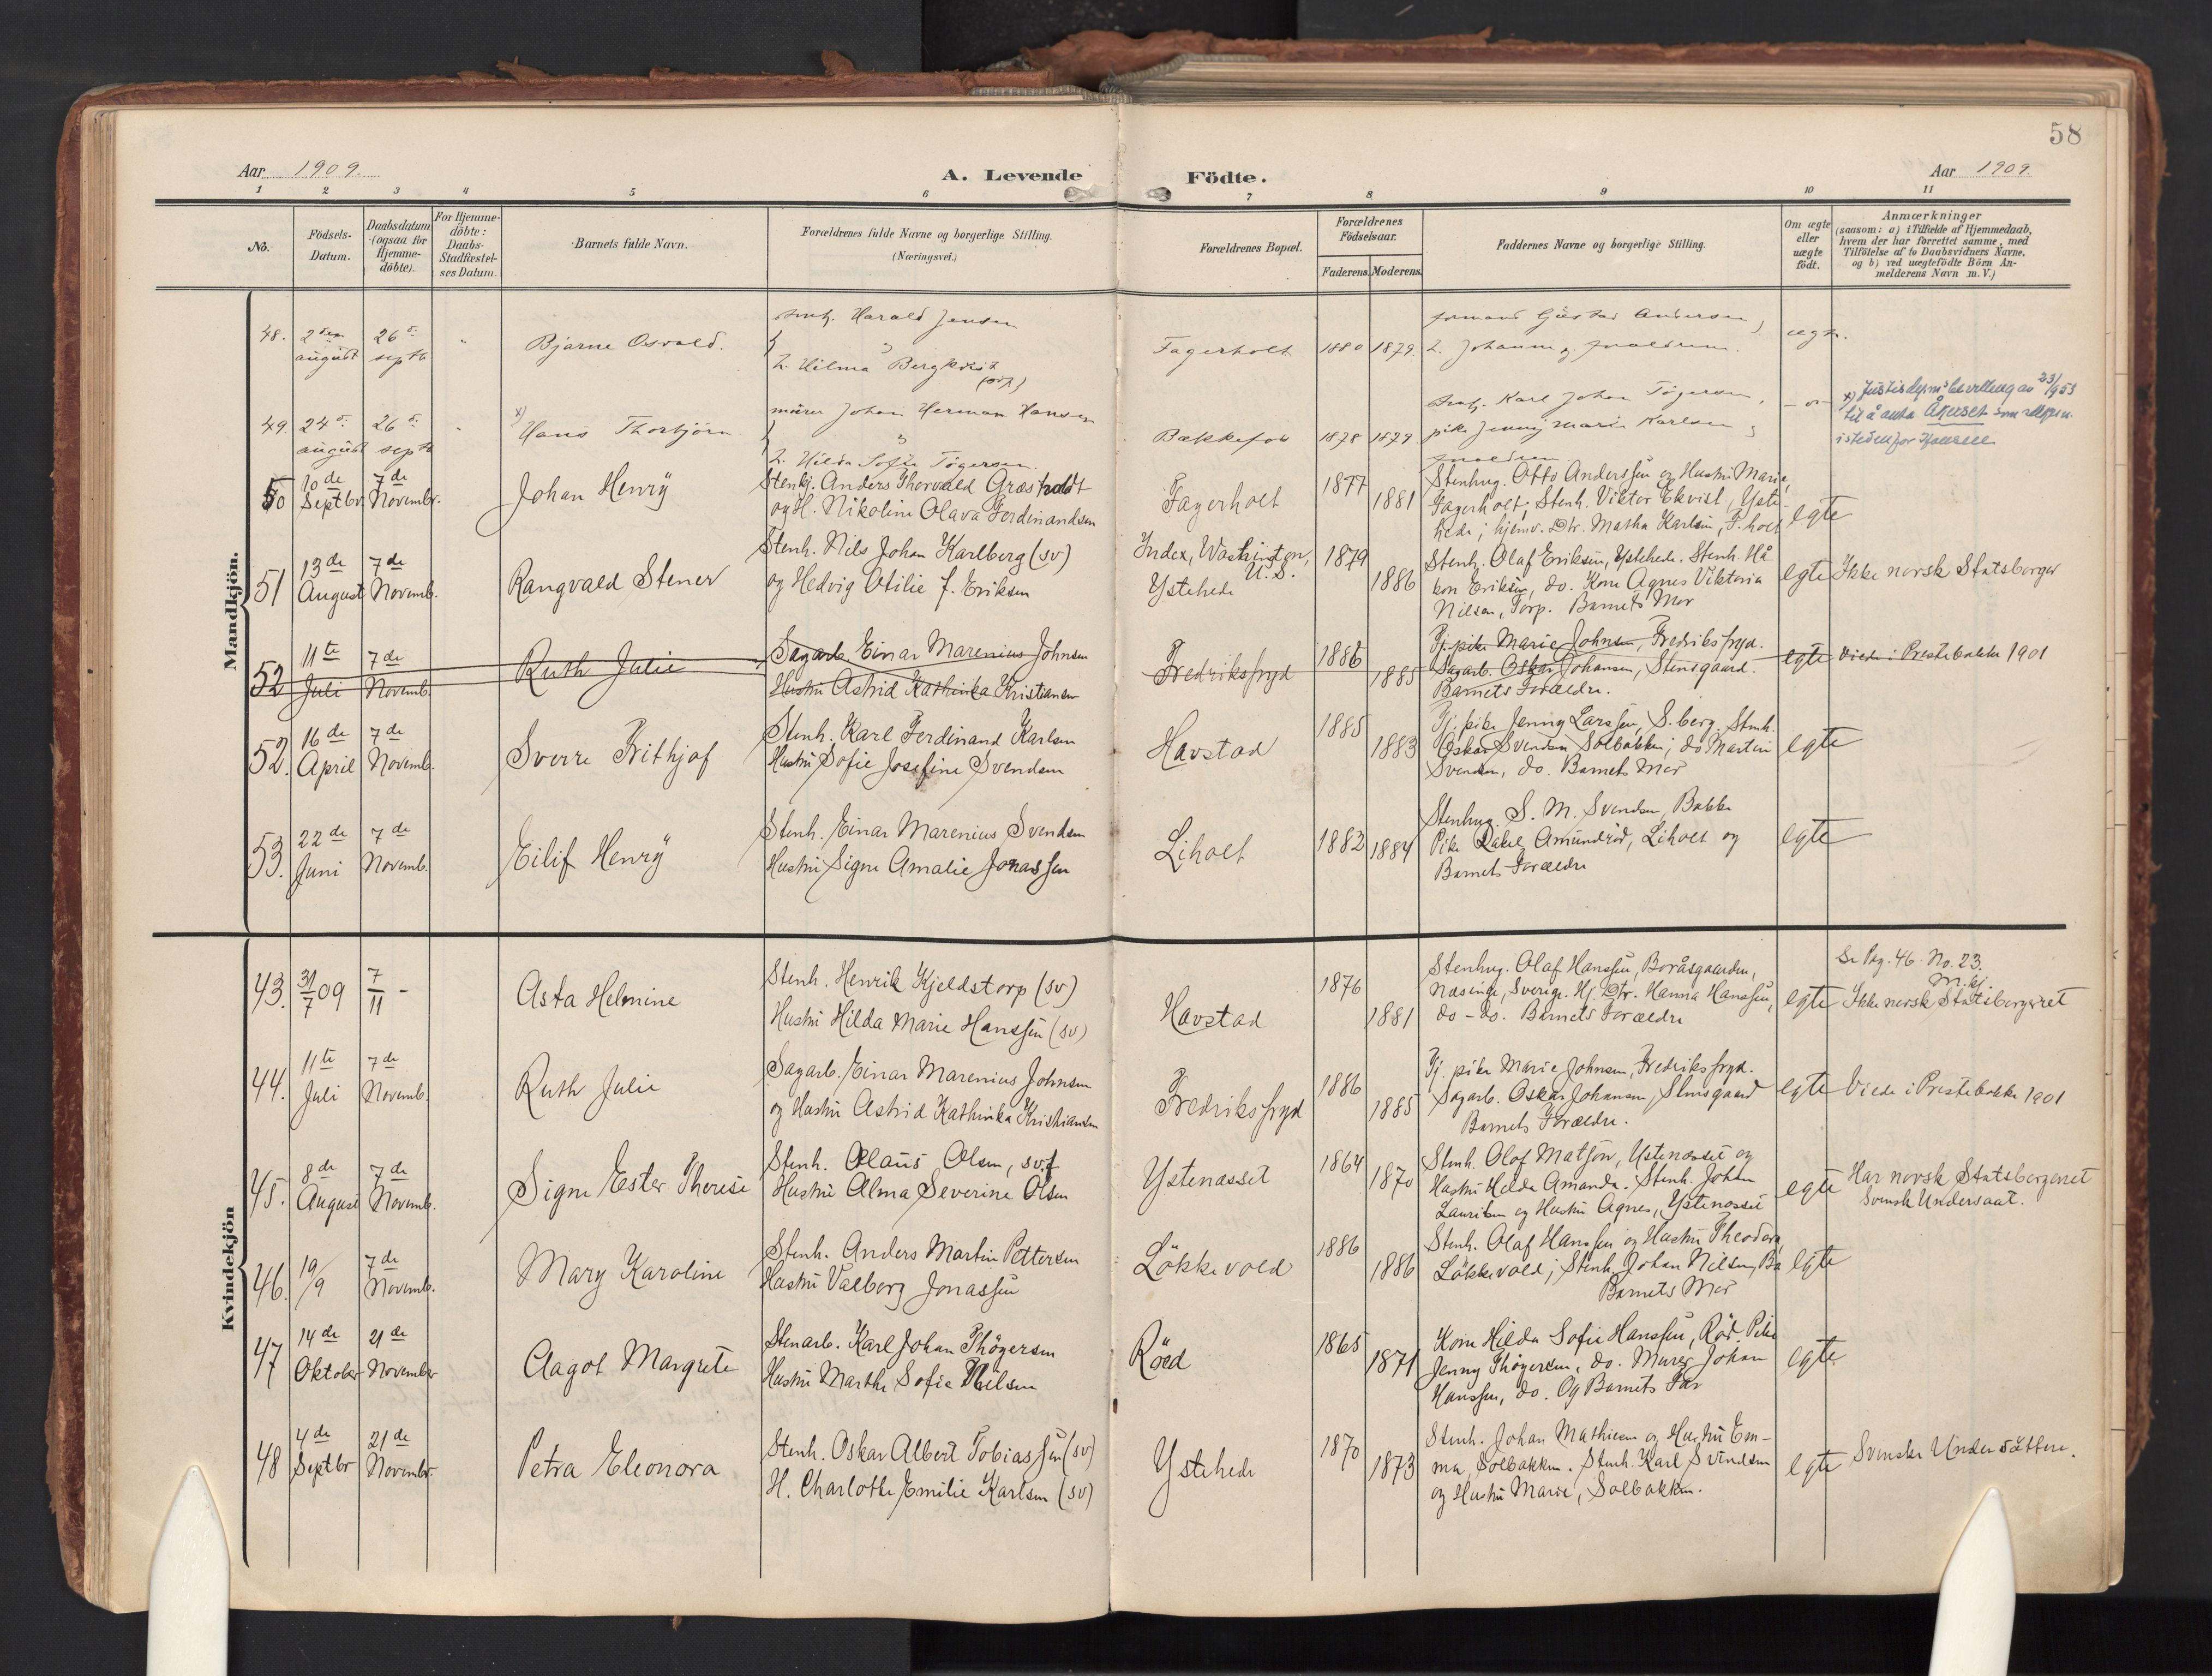 58
Aar 1909.
A. Levende Födte.
Aar 1909.
1 2 3 4 5 6 7 8 9 10 11
No.
Födsels-Datum.
Daabsdatum (ogsaa for Hjemme-döbte).
For Hjemme-döbte: Daabs-Stadfæstel-ses Datum.
Barnets fulde Navn.
Forældrenes fulde Navne og borgerlige Stilling.
(Næringsvei.)
Forældrenes Bopæl.
Forældrenes Födselsaar.
Faderens. Moderens.
Faddernes Navne og borgerlige Stilling.
Om ægte eller uægte födt.
Anmærkninger
(saasom: a) i Tilfælde af Hjemmedaab,
hvem der har forrettet samme, med
Tilföielse af to Daabsvidners Navne,
og b) ved uægtefödte Börn An-
melderens Navn m. V.)
Mandkjön.
48. 2den august 26d. septb. " Bjarne Osvald.
Harald Jensen
H. Hilma Bergkvist
Fagerholt 1880 1879.
formand Gustav Andersen,
forældrene. ægte.
49. 24d. august 26d. septb " x) Hans Thorbjörn
murer Johan Herman Hansen
H. Hilda Sofie Tøgersen.
Bakkefos 1878 1879
Karl Johan Tøgersen,
pike Jenny Marie Karlsen
forældrene
x) Justisdepm's bevilling av 23/9 53
til å anta Åkerset som
istedenfor Hansen
50 10de Septbr. 7de Novembr. Johan Henrÿ
Stenhj. Anders Thorvald Græsholdt
og H. Nikoline Olava Ferdinandsen
Fagerholt 1877 1881
Stenhug. Otto Anderssen og Hustru Marie,
Fagerholt; Stenh. Viktor Ekvist, Yste-
hede; hjemv. Dtr. Matha Karlsen, F.holt
egte
51 13de August 7de Novemb. Rangvald Stener
Stenh. Nils Johan Karlberg (sv)
og Hedvig Otilie f. Eriksen
Index, Washington, U.S.
Ystehede
1879 1886
Stenh. Olaf Eriksen, Ystehede. Stenh. Hå
kon Eriksen, do. Kone Agnes Viktoria
Nilsen, Torp. Barnets Mor
egte Ikke norsk Statsborger
52 11te Juli 7de Novemb. Ruth Julie
Sagarb. Einar Marenius Johnsen
Hustru Astrid Kathinka Kristiansen
Fredriksfryd 1886 1885
Tj. pike Marie Johnsen, Fredriksfryd.
Sagarb. Oskar Johansen, Stensgaard.
Barnets Forældre.
egte Viede i Prestebakke 1901
52. 16de April 7de Novemb. Sverre Frithjof
Stenh. Karl Ferdinand Karlsen
Hustru Sofie Josefine Svendsen
Havstad 1885 1883
Tj. pike Jenny Larssen, S.berg. Stenh.
Oskar Svendsen Solbakken; do Martin
Svendsen, do. Barnets Mor
egte
53. 22de Juni 7de Novemb. Eilif Henrÿ
Stenh. Einar Marenius Svendsen
Hustru Signe Amalie Jonassen
Liholt 1882 1884
Stenhug. S. M. Svendsen, Bakke
Pike Rakel Amundröd, Liholt og
Barnets Forældre
egte
Kvindekjön
43. 31/7 09 7/11 - Asta Helmine
Stenh. Henrik Kjeldstorp (sv)
Hustru Hilda Marie Hanssen (sv)
Havstad 1876 1881
Stenhug. Olaf Hanssen, Boråsgaarden,
Næsinge, Sverige. Hj. Dtr. Hanna Hanssen,
do - do. Barnets Forældre
egte
Se Pag. 46. No. 23.
M.kj.
Ikke norsk Statsborgerret
44. 11te Juli 7de Novemb. Ruth Julie
Sagarb. Einar Marenius Johnsen
og Hustru Astrid Kathinka Kristiansen
Fredriksfryd 1886 1885
Tj. pike Marie Johnsen, Fredriksfryd.
Sagarb. Oskar Johansen, Stensgaard
Barnets Forældre.
egte Viede i Prestebakke 1901
45. 8de August 7de Novemb. Signe Ester Therese
Stenh. Olaus Olsen, sv.f
Hustru Alma Severine Olsen
Ystenæsset 1864 1870
Stenh. Olof Matson, Ystenæsset og
Hustru Helda Amanda. Stenh. Johan
Lauritsen og Hustru Agnes, Ystenæsset
egte
Har norsk Statsborgerret
Svensk Undersaat.
46. 19/9 7de Novemb. Mary Karoline
Stenh. Anders Martin Pettersen
Hustru Valborg Jonassen
Lökkevold 1886 1886
Stenh. Olaf Hanssen og Hustru Theodora,
Lökkevold; Stenh. Johan Nilsen, Ba
Barnets Mor
egte
47 14de Oktober 21de November Aagot Margrete
Stenarb. Karl Johan Thögersen
Hustru Marthe Sofie Nilsen
Röed 1865 1871
Kone Hilda Sofie Hanssen, Röd. Pike
Jenny Thögersen, do. Murer Johan
Hanssen, do. Og Barnets Far
egte
48 4de Septbr 21de Novembr. Petra Eleonora
Stenh. Oskar Albert Tobiassen (sv)
H. Charlotte Emilie Karlsen (sv)
Ystehede 1870 1873
Stenh. Johan Mathisen og Hustru Em-
ma, Solbakken. Stenh. Karl Svendsen
og Hustru Marie, Solbakken.
egte Svenske Undersåttere.